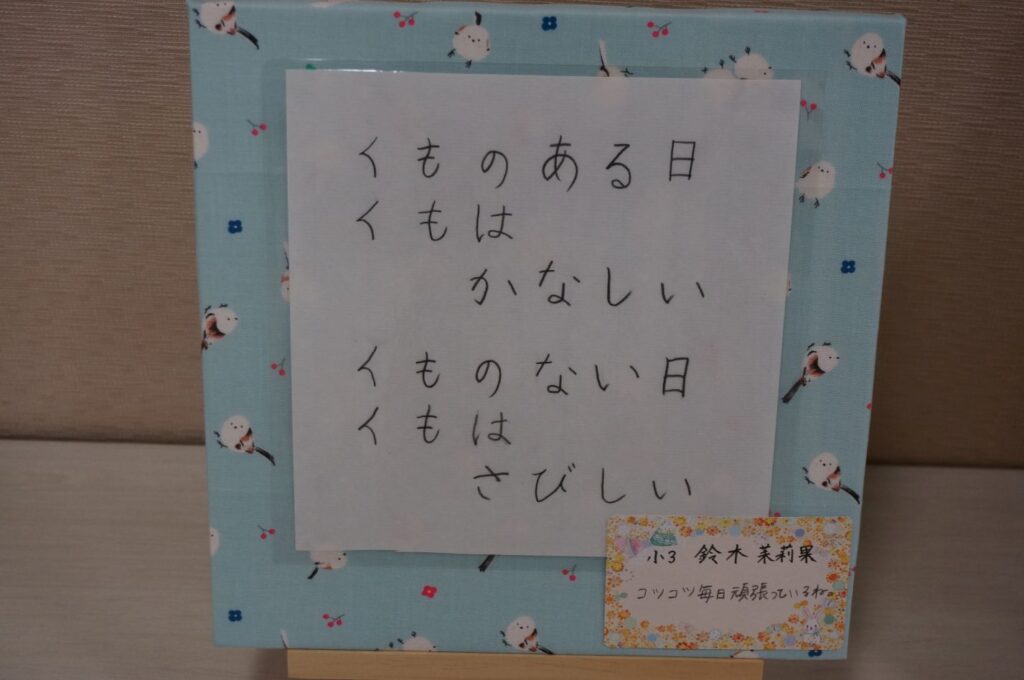 くものある日
くもは
かなしい
くものない日
くもは
さびしい
小3 鈴木茉莉果
コツコツ毎日頑張っているね。